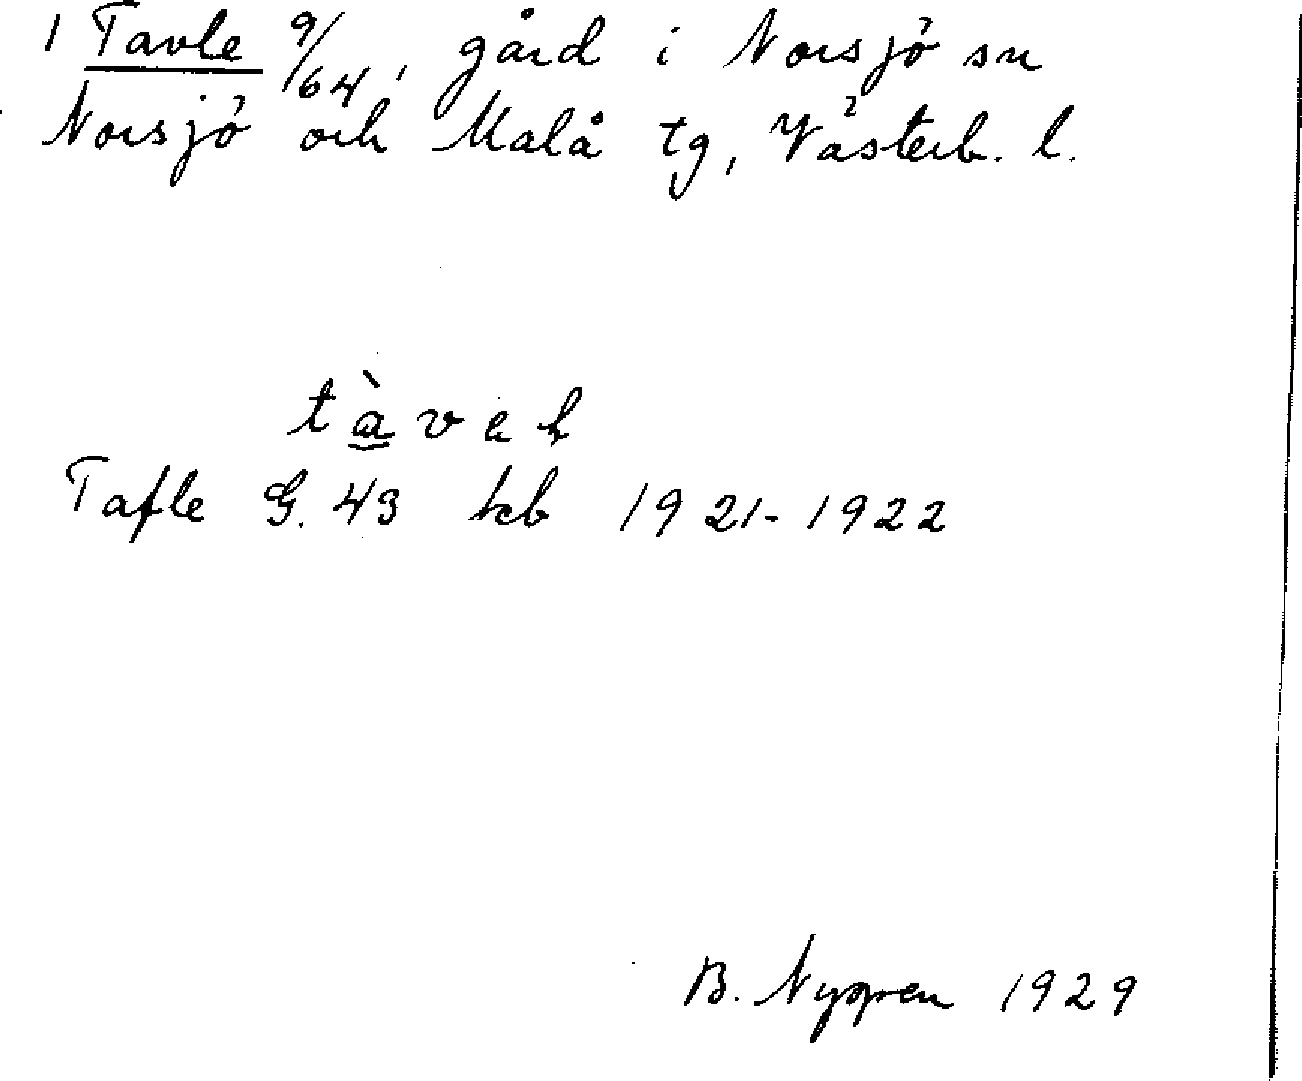 1 Tavle 9/64, gård i Norsjö sn
Norsjö och Malå tg, Västerb. l.
tàvel
Tafle G. 43 kb 1921-1922
B. Nyppen 1929